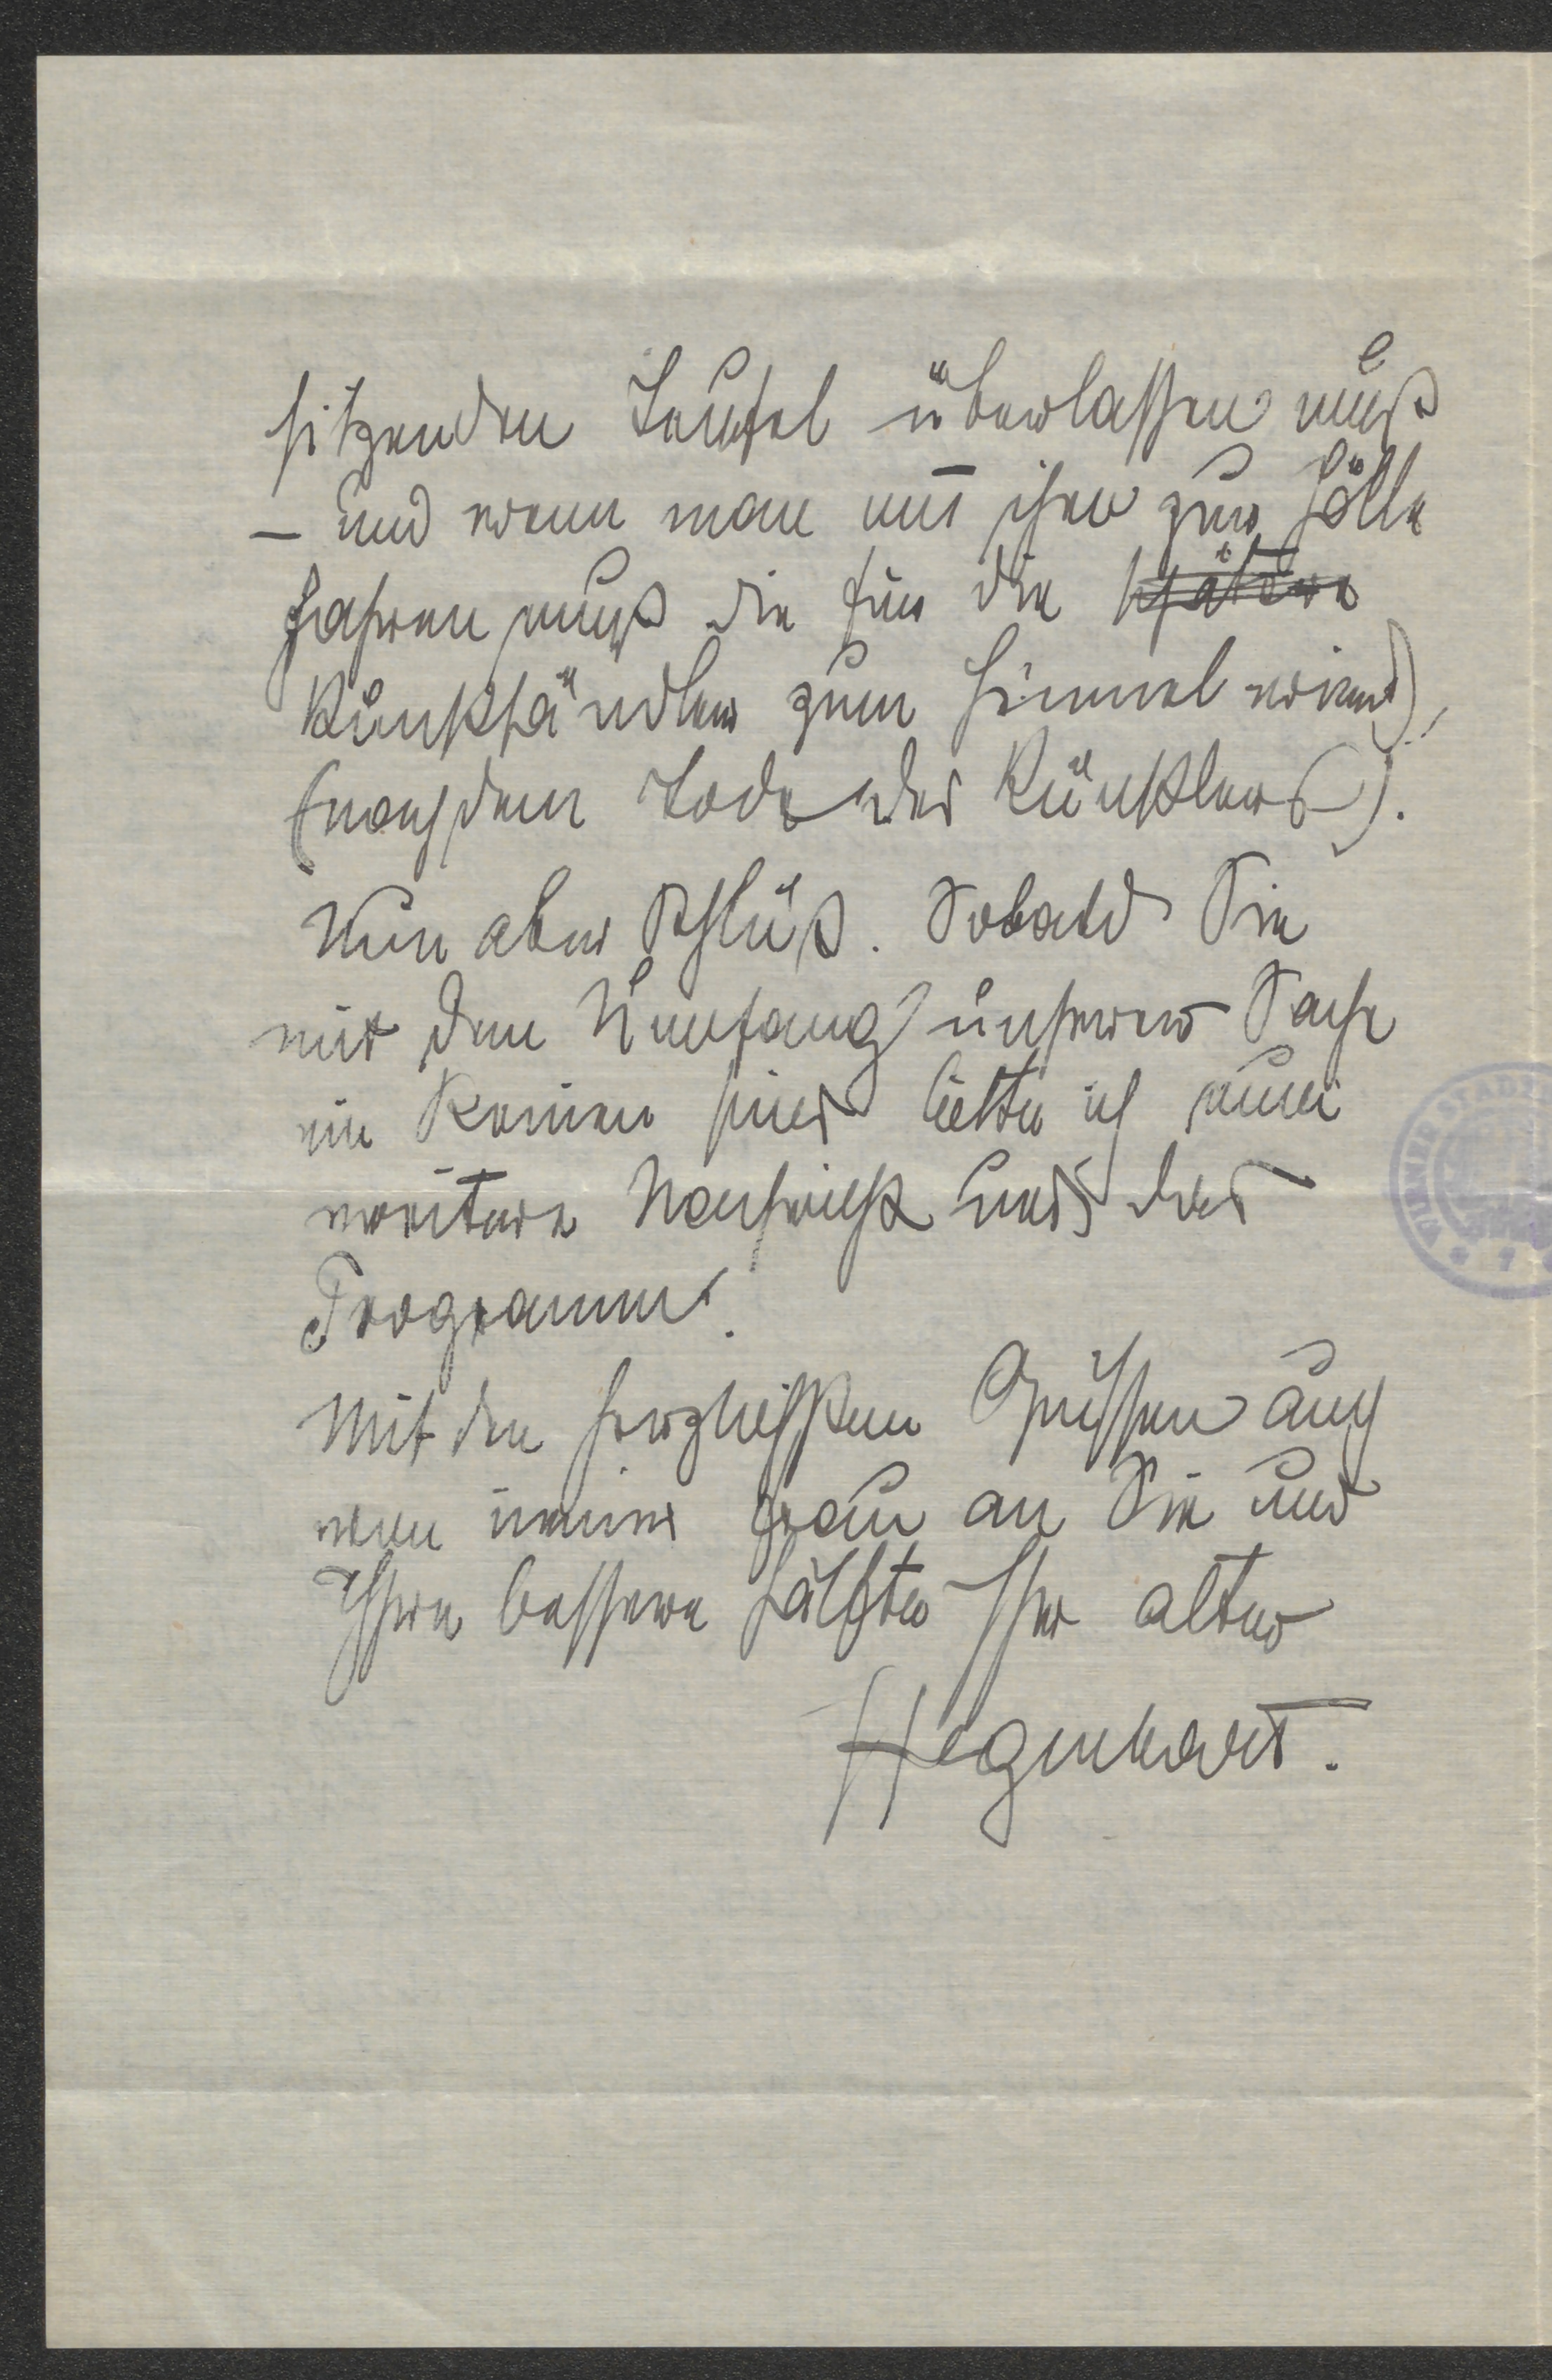 sitzenden Teufel überlassen muß
– und wenn man mit ihr zur Hölle
fahren muß die für die spätere
Kunsthändler zum Himmel wird),
(nach dem Tode des Künstlers).
Nun aber Schluß. Sobald Sie
mit dem Umfang unserer Sache
im Reinen sind bitte ich um
weitere Nachricht und das
Programm.
Mit den herzlichsten Grüssen auch
von meiner Frau an Sie und
Ihre bessere Hälfte Ihr alter
Hegenbart.
WIENER STADT